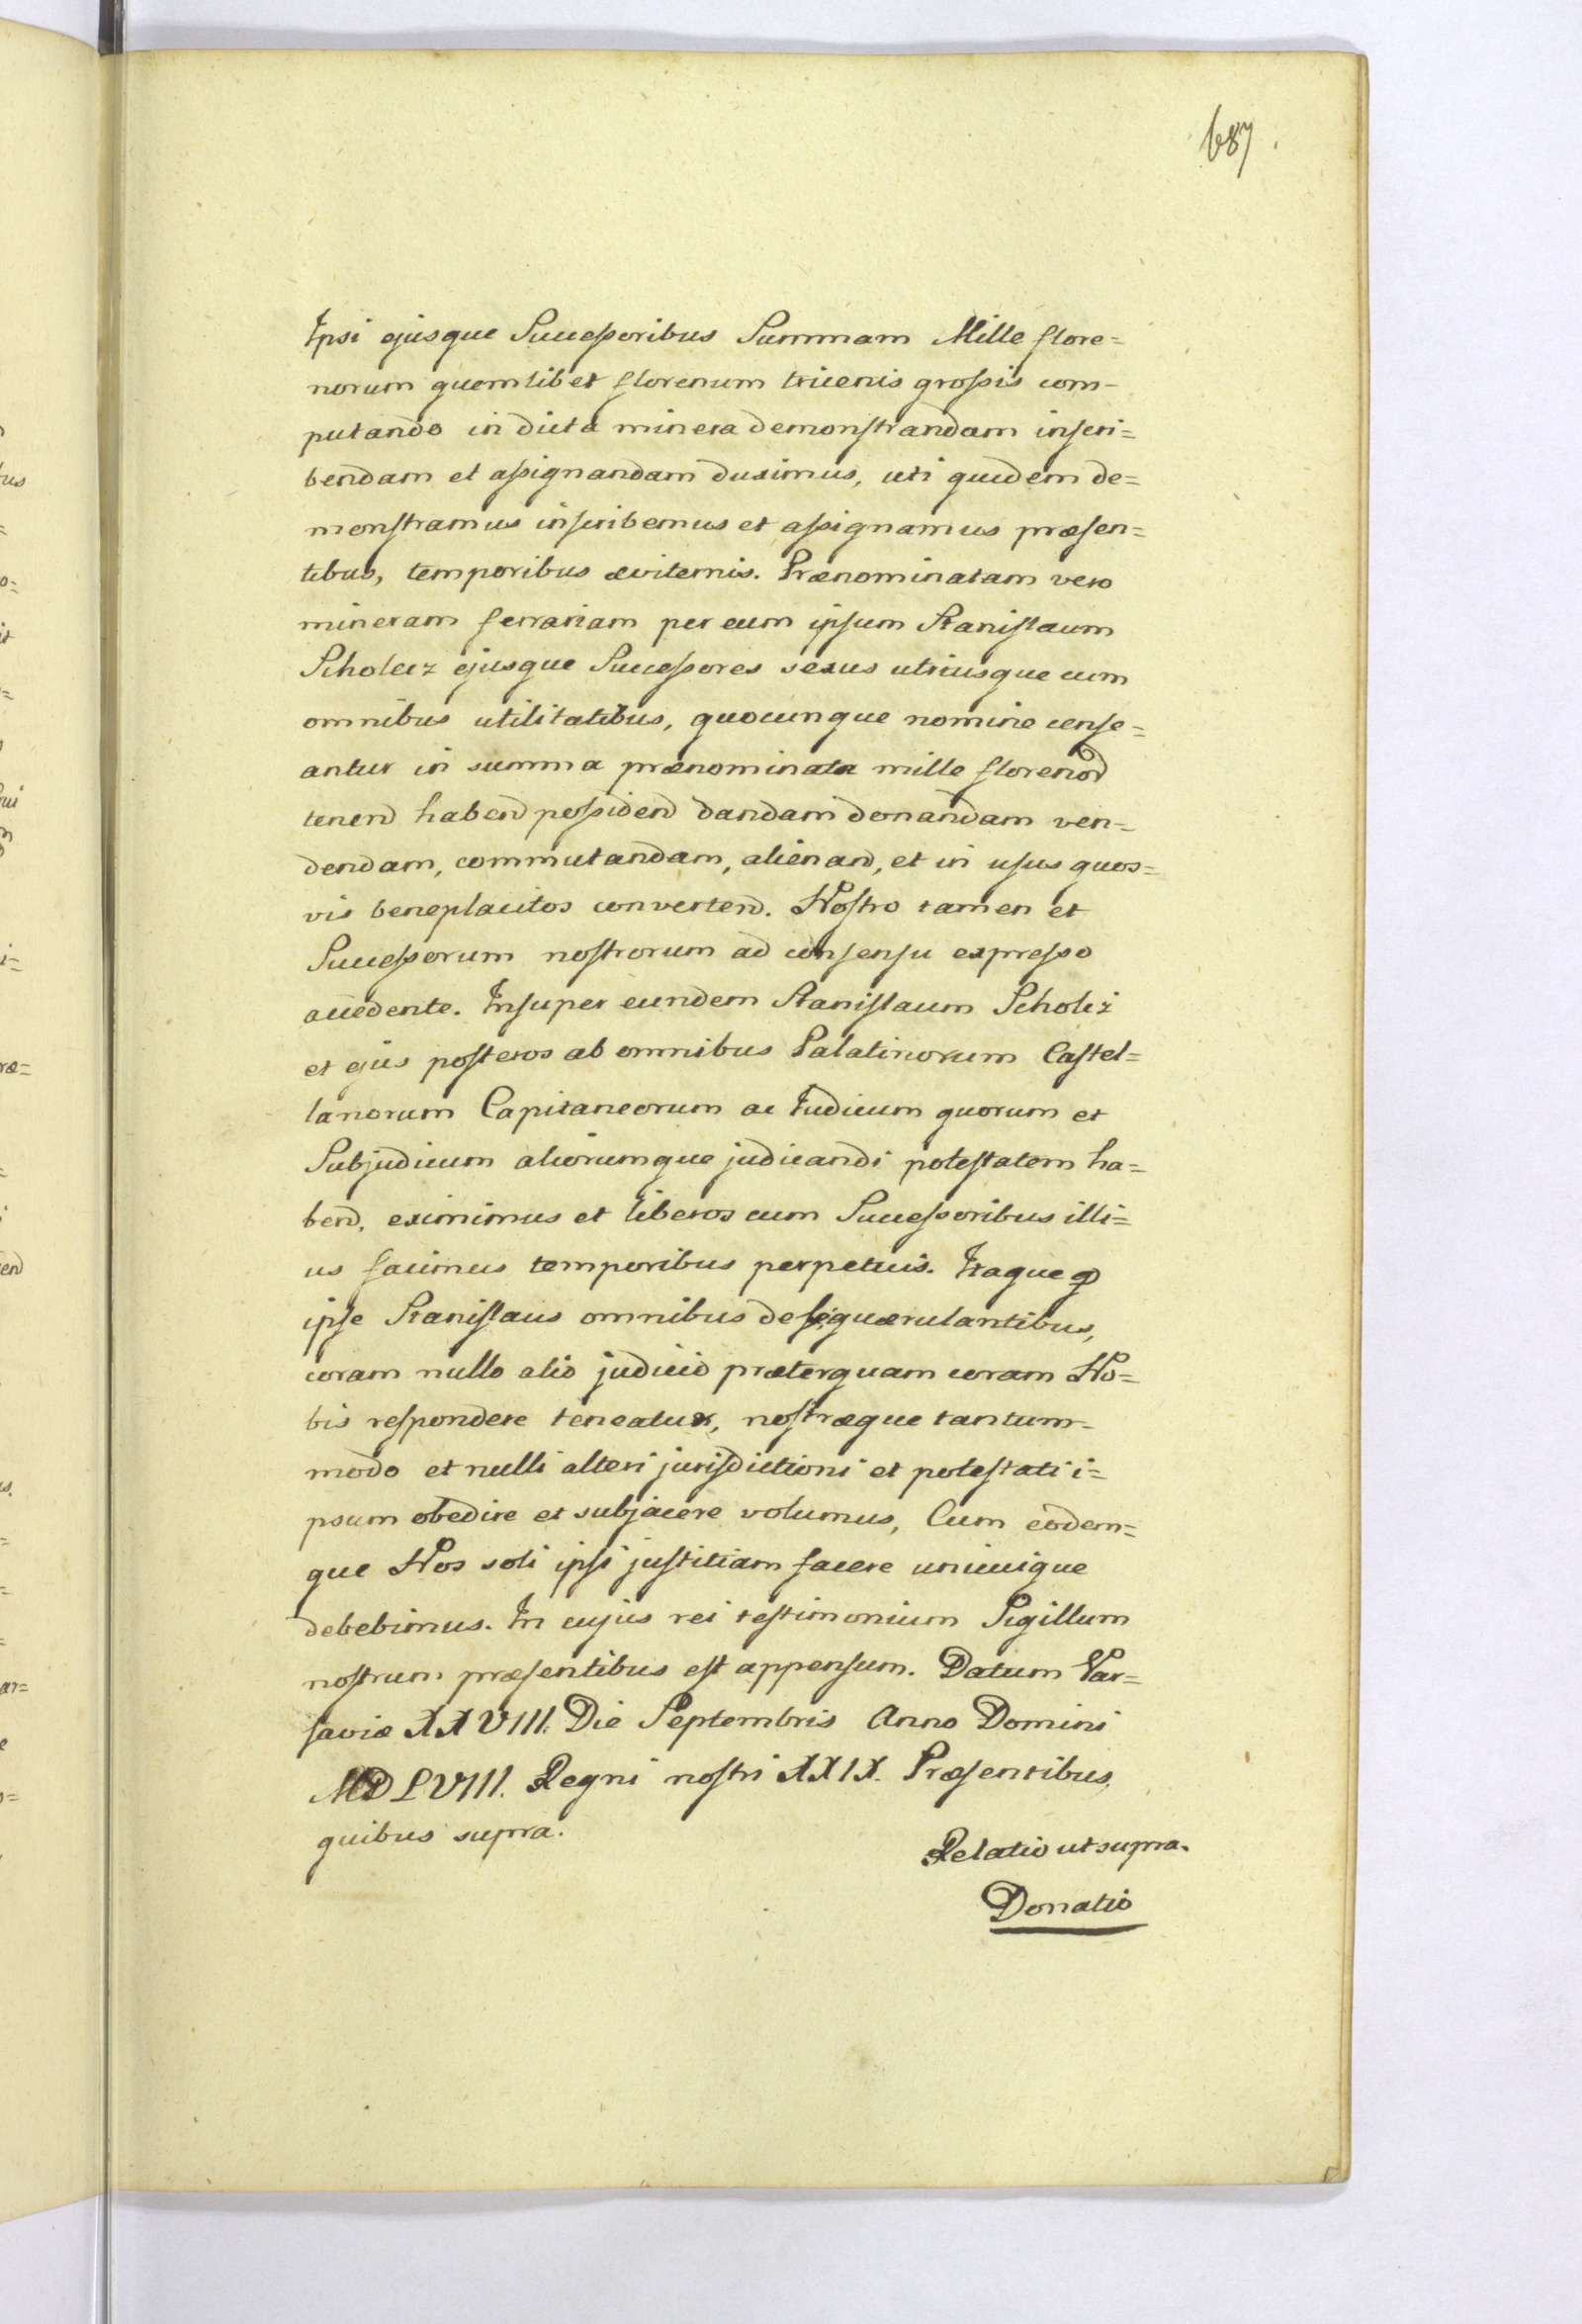 687.
Ipsi ejusque Successoribus Summam Mille flore=
norum quemlibet florenum tricenis grossis com-
putando in dicta minera demonstrandam inscri=
bendam et assignandam duximus, uti quidem de=
monstramus inscribemus et assignamus præsen=
tibus, temporibus æviternis. Prænominatam vero
mineram ferrariam per eum ipsum Stanislaum
Scholcz ejusque Successores sexus utriusque cum
omnibus utilitatibus, quocunque nomine cense=
antur in summa prænominata mille florenod
tenend habend possidend dandam donandam ven=
dendam, commutandam, alienand, et in usus quos=
vis beneplacitos convertend. Nostro tamen et
Successorum nostrorum ad consensu expresso
accedente. Insuper eundem Stanislaum Scholcz
et ejus posteros ab omnibus Palatinorum Castel=
lanorum Capitaneorum ac Judicum quorum et
Subjudicum aliorumque judicandi potestatem ha=
bend, eximimus et liberos cum Successoribus illi=
us facimus temporibus perpetuis. Itaque qd
ipse Stanislaus omnibus de se quærulantibus,
coram nullo alio judicio præterquam coram No=
bis respondere teneatur, nostræque tantum=
modo et nulli alteri jurisdictioni et potestati i=
psum obedire et subjacere volumus, Cum eodem=
que Nos soli ipsi justitiam facere unicuique
debebimus. In cujus rei testimonium Sigillum
nostrum præsentibus est appensum. Datum Var=
saviæ XXVIII. Die Septembris Anno Domini
MDLVIII. Regni nostri XXIX. Præsentibus,
quibus supra.
Relatio ut supra.
Donatio